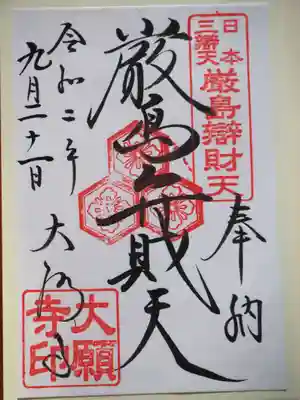 奉納
日本三辨天
厳島辨財天
厳島弁財天
大願寺
令和二年
九月二十一日
大願寺印